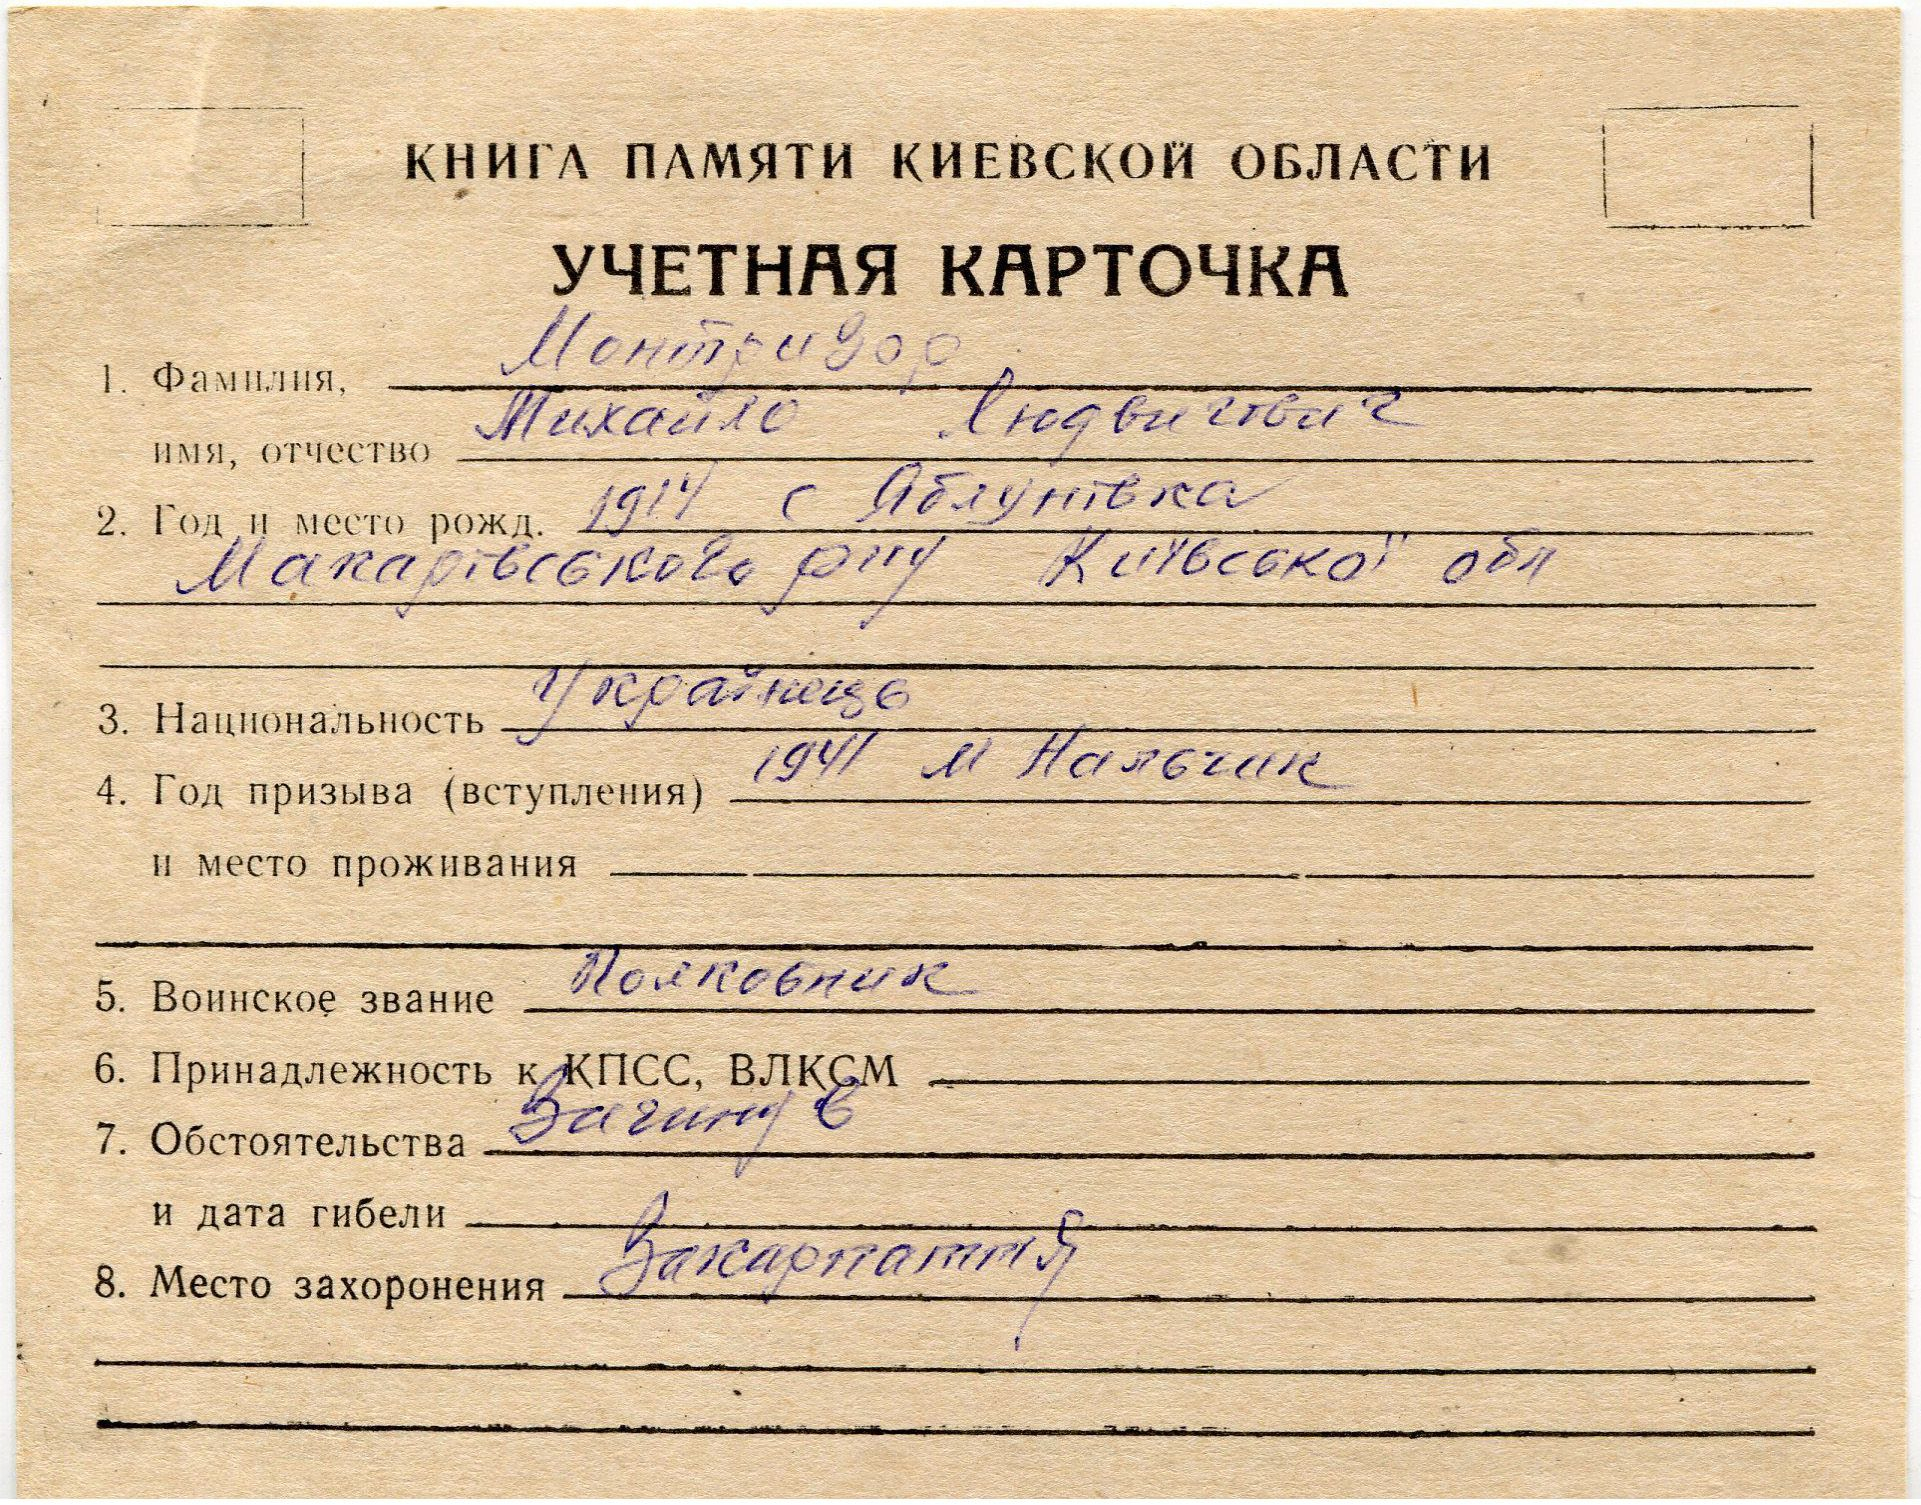 КНИГА ПАМЯТИ КИЕВСКОЙ ОБЛАСТИ
УЧЕТНАЯ КАРТОЧКА
1. Фамилия, Монтризор
имя, отчество Михайло Людвигович
2. Год и место рожд. 1914 с Яблунівка
Макарівського р-ну Київської обл
3. Национальность Українець
4. Год призыва (вступления) 1941 м Нальчик
и место проживания
5. Воинское звание Полковник
6. Принадлежность к КПСС, ВЛКСМ
7. Обстоятельства Загинув
и дата гибели
8. Место захоронения Закарпаття